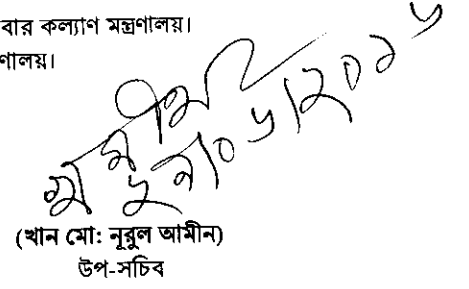 বার কল্যাণ মন্ত্রণালয়।
ণালয়।
(খান মো: নূরুল আমীন)
উপ-সচিব